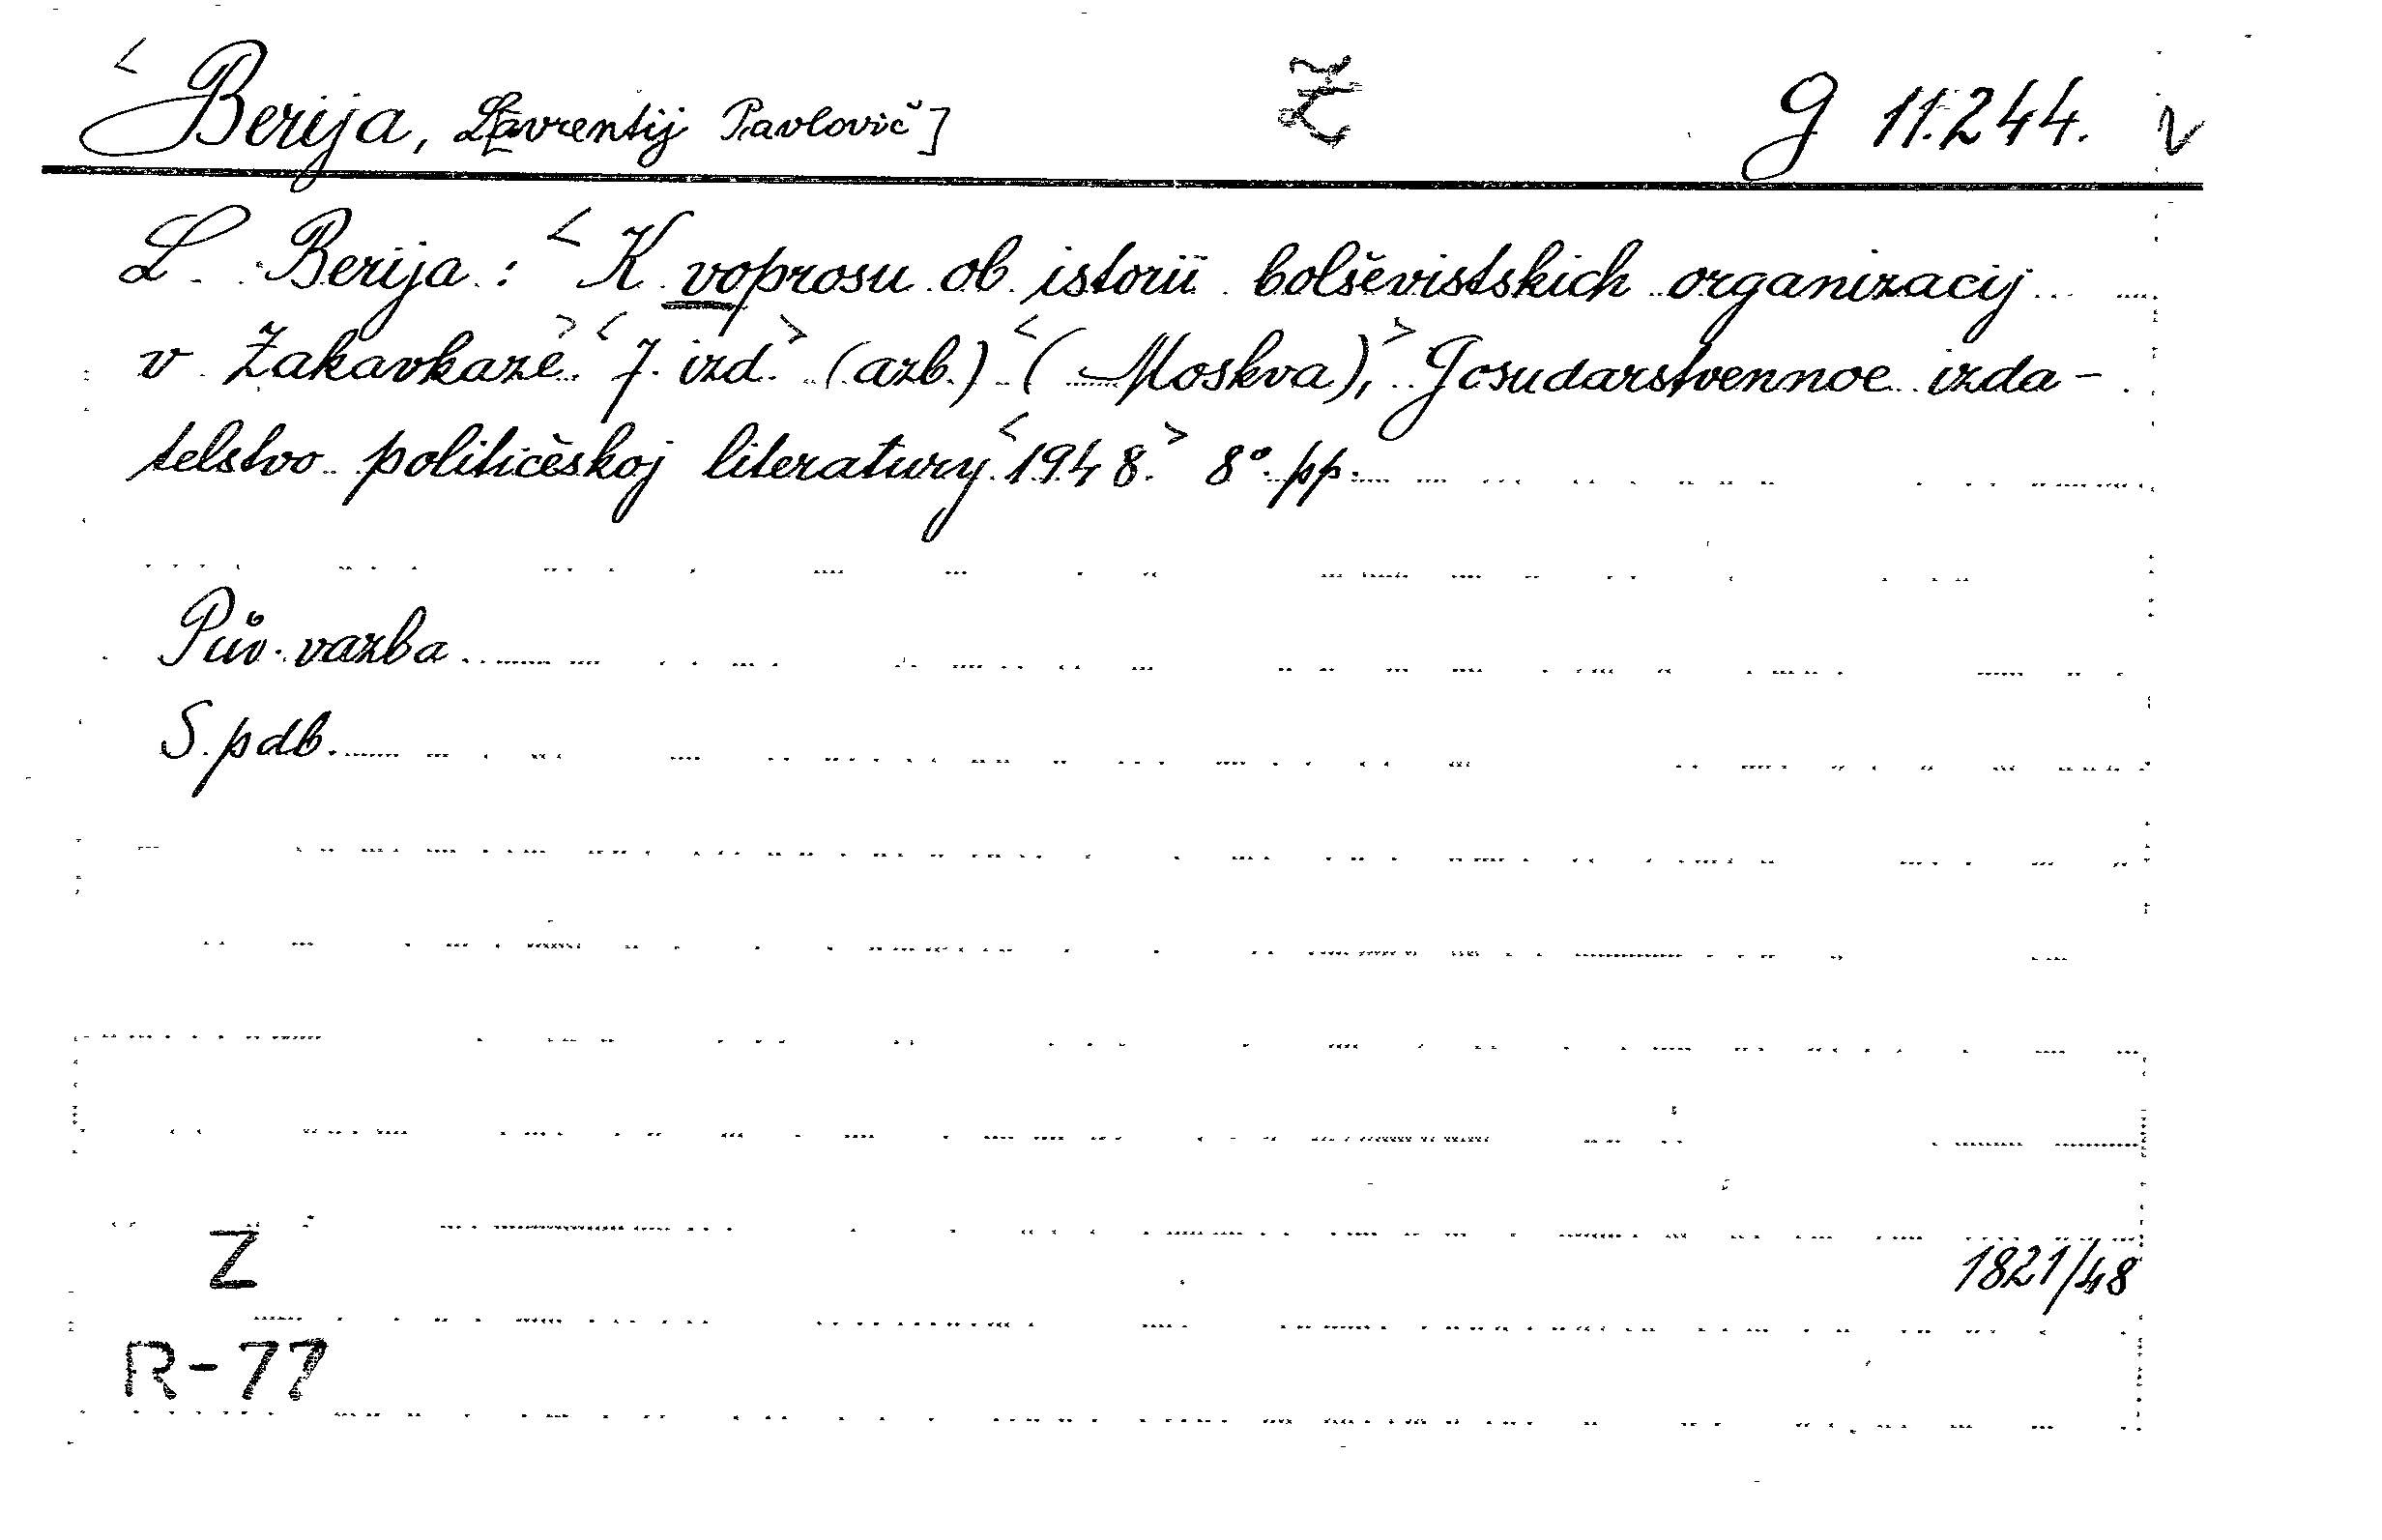 < Berija, L[avrentij Pavlovič] Ž G 11.244. v
L. Berija: < K voprosu ob istorii bolševistskich organizacij
v Zakavkaze. > < 7. izd. > (azb.) < (Moskva), > Gosudarstvennoe izda-
telstvo političeskoj literatury < 1948. > 8°. pp.
Pův. vazba
S. pdb.
Z 1821/48
R-77